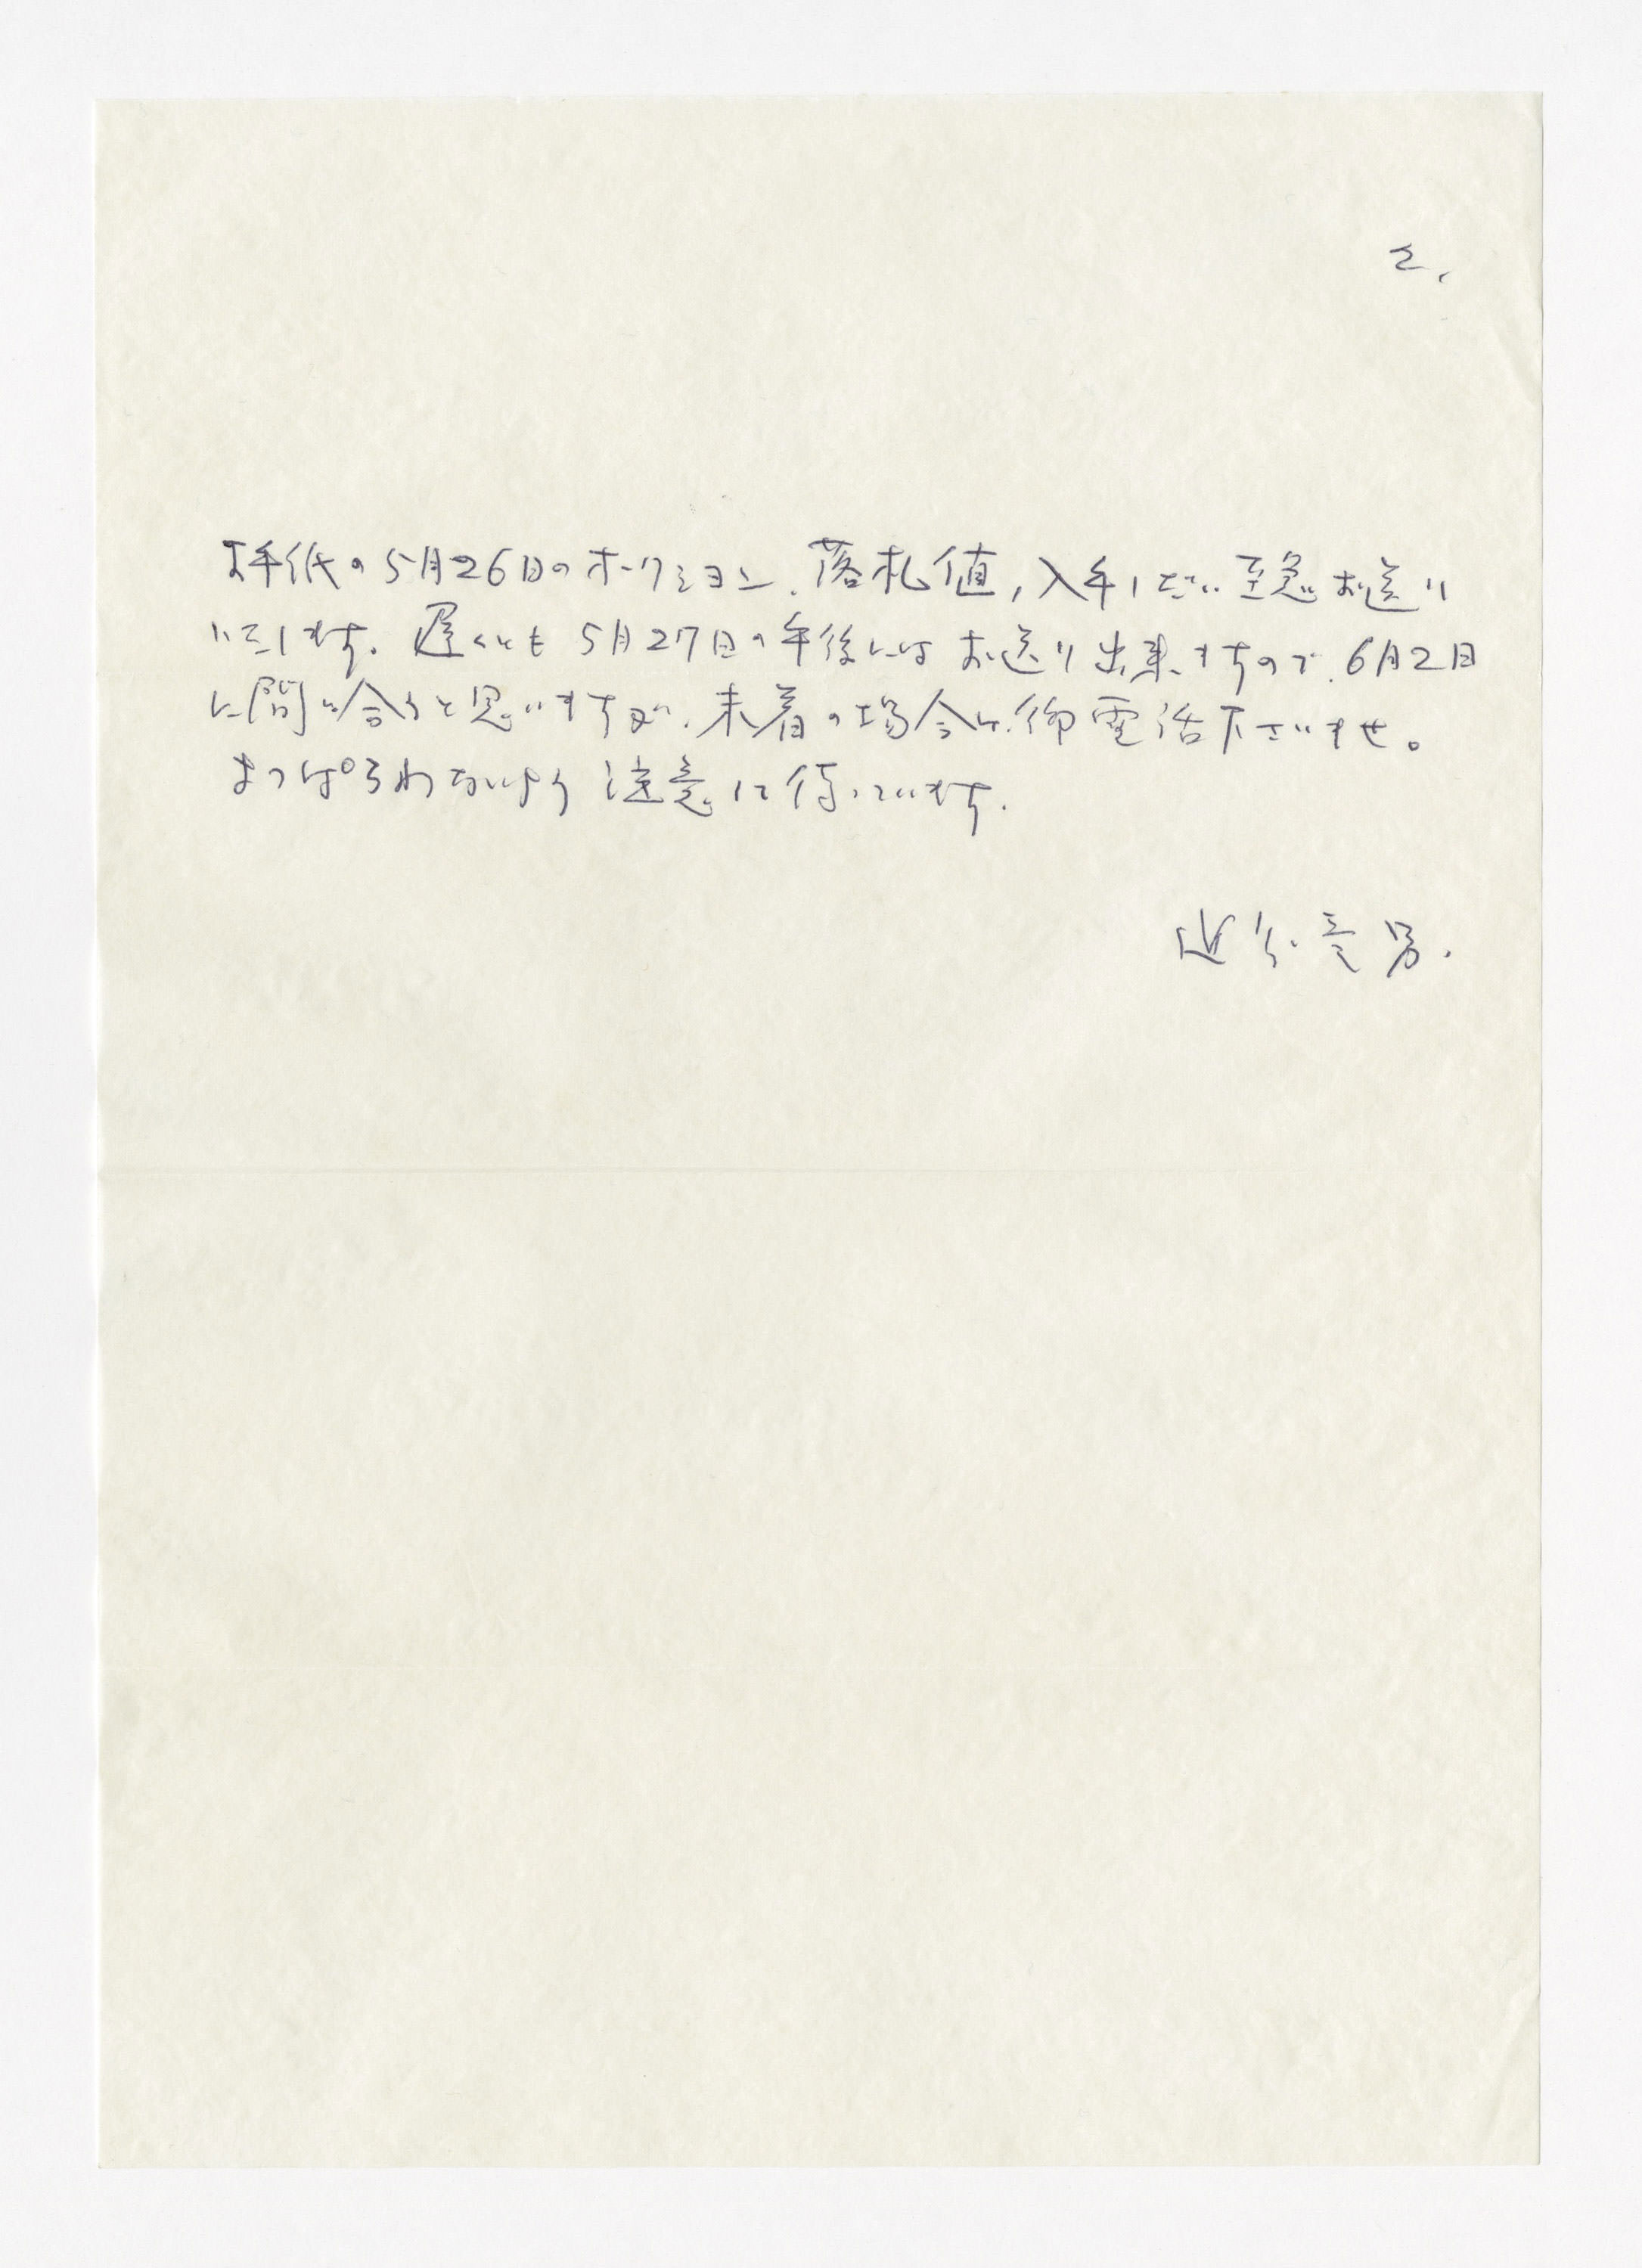 2.
お手紙の5月26日のオークション、落札値,入手しだい至急お送り
いたします。遅くとも5月27日の午後にはお送り出来ますので、6月2日
に間に合うと思いますが、未着の場合は、御電話下さいませ。
よっぱらわないよう注意して待っています。